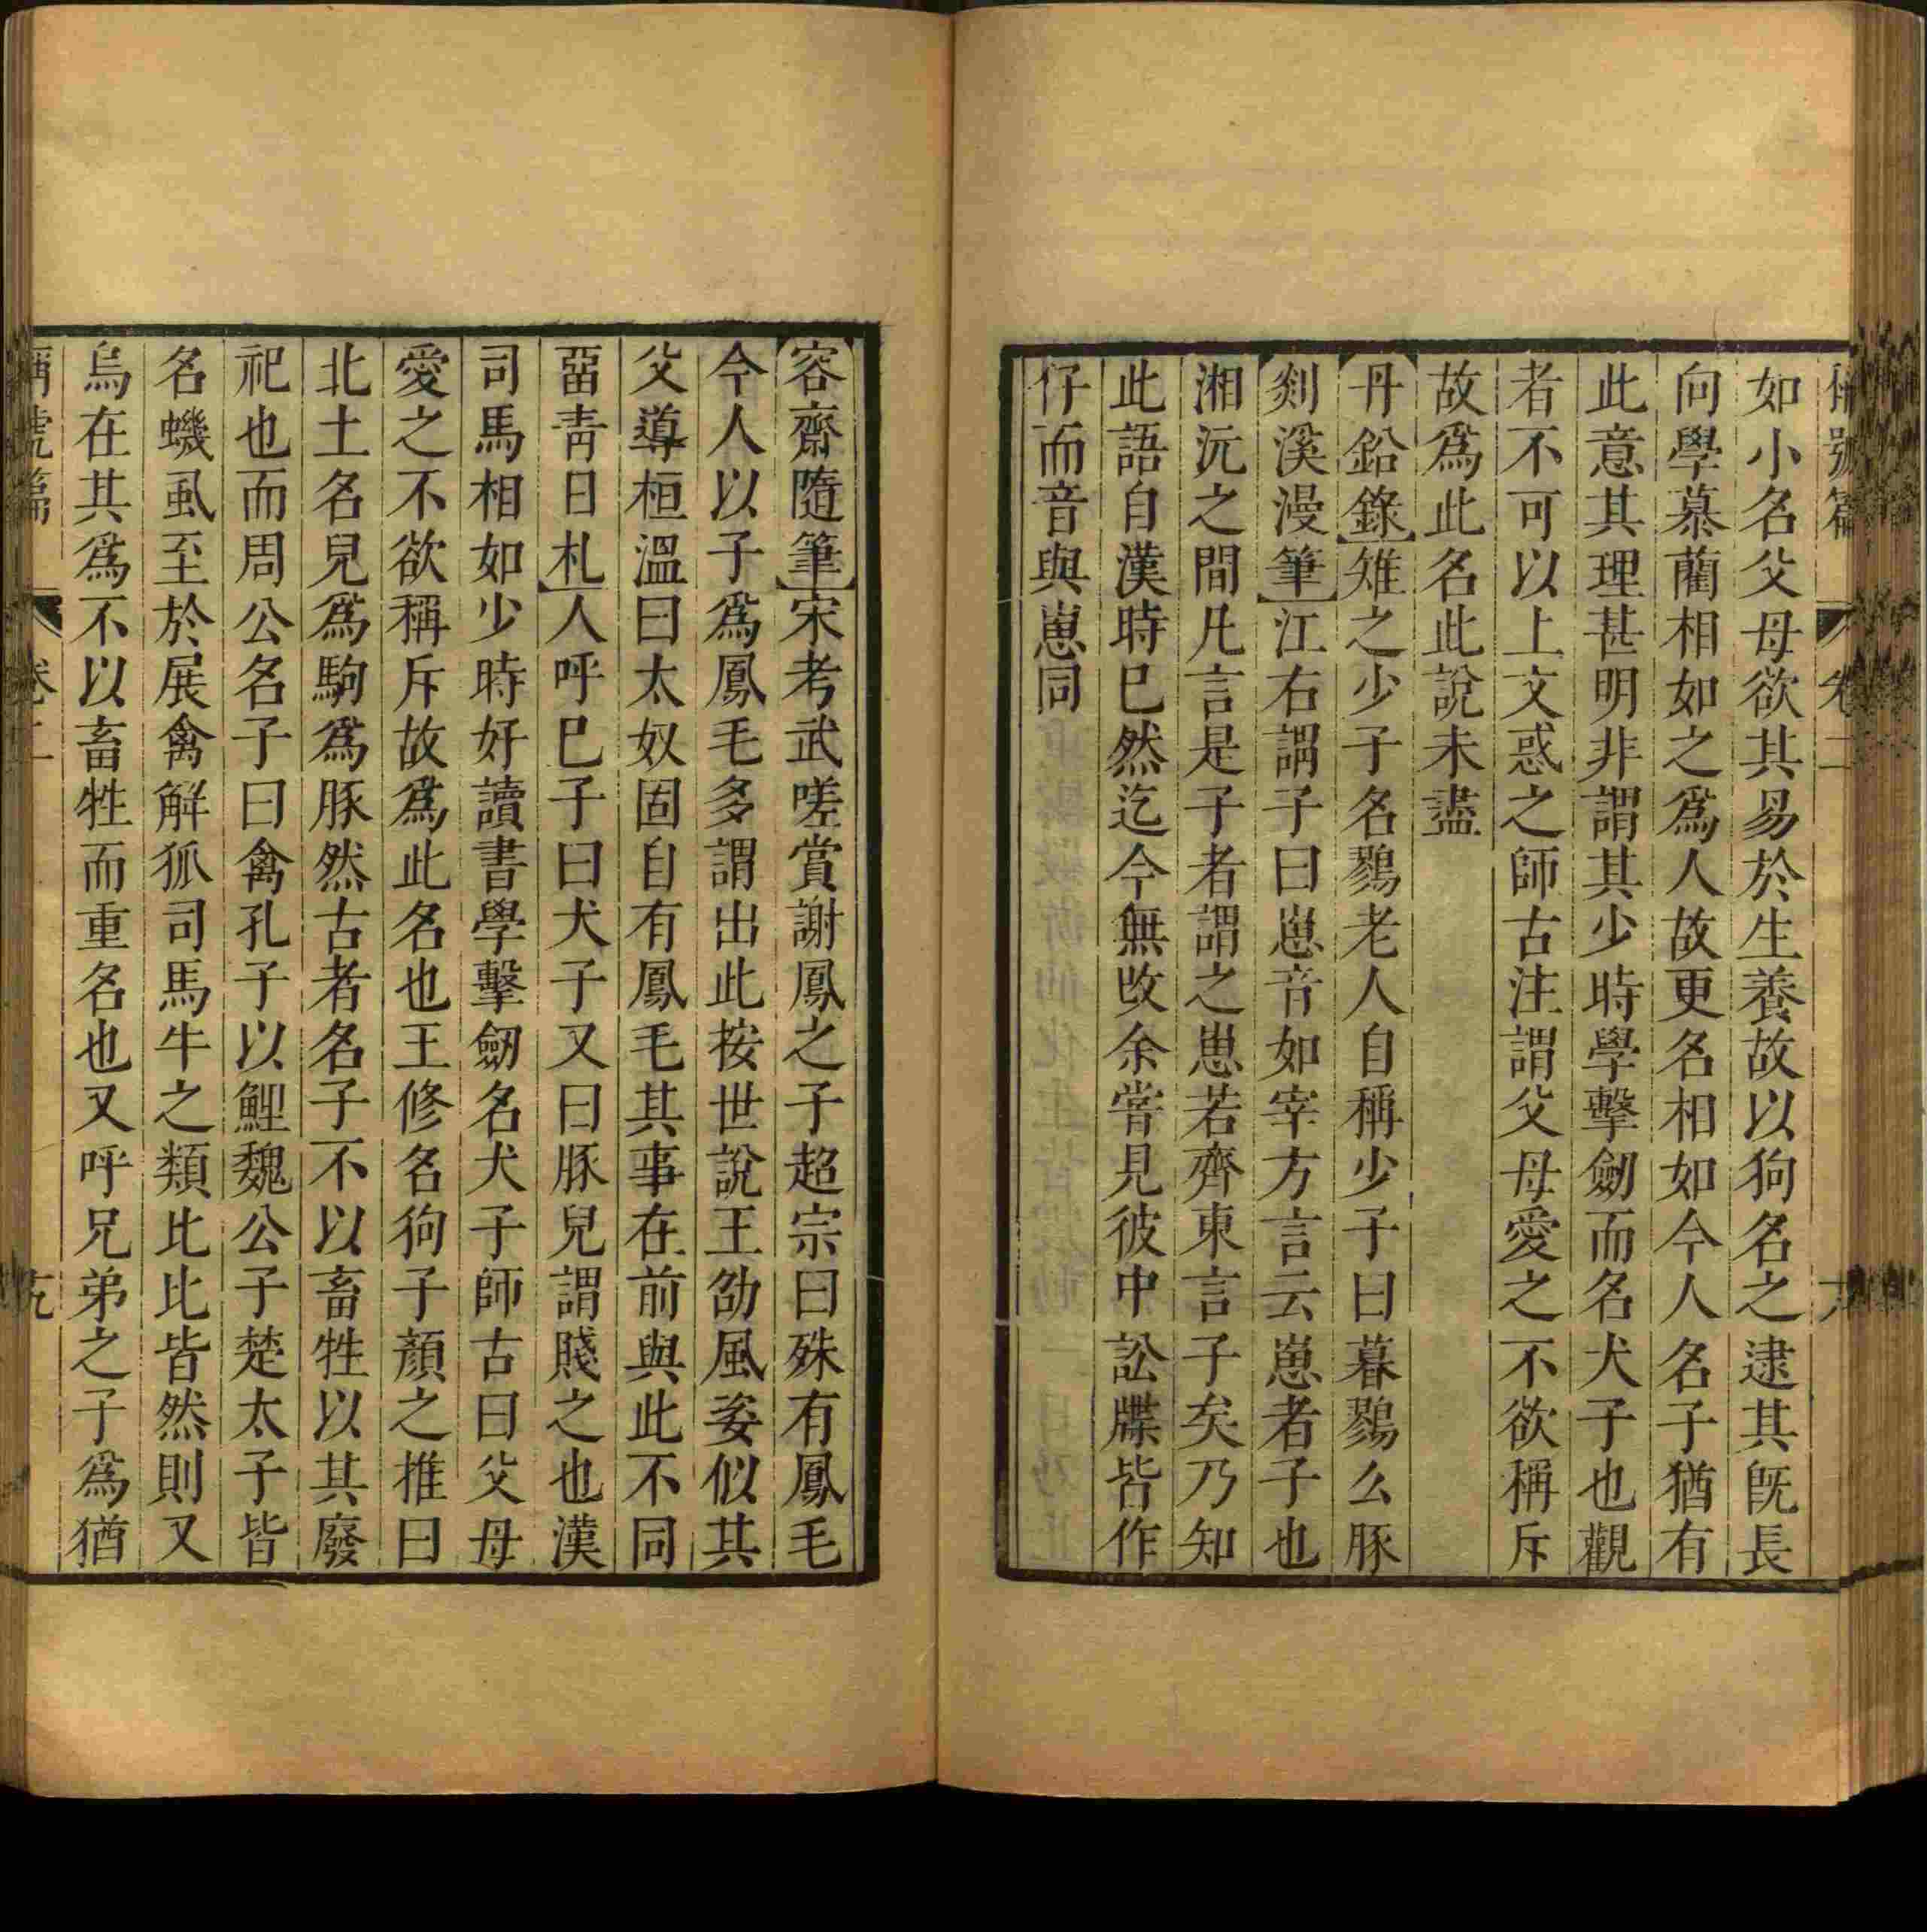 如小名父母欲其易於生養故以狗名之逮其既長
向學慕藺相如之爲人故更名相如今人名子猶有
此意其理甚明非謂其少時學擊劒而名犬子也觀
者不可以上文惑之師古注謂父母愛之不欲稱斥
故爲此名此說未盡
丹鉛錄雉之少子名鷚老人自稱少子曰暮鷚么豚
剡溪漫筆江右謂子曰崽音如宰方言云崽者子也
湘沅之間凡言是子者謂之崽若齊東言子矣乃知
此語自漢時已然迄今無改余嘗見彼中訟牒皆作
仔而音與崽同
容齋隨筆宋孝武嗟賞謝鳳之子超宗曰殊有鳳毛
今人以子爲鳳毛多謂出此按世說王劭風姿似其
父導桓溫曰太奴固自有鳳毛其事在前與此不同
畱青日札人呼已子曰犬子又曰豚兒謂賤之也漢
司馬相如少時好讀書學擊劒名犬子師古曰父母
愛之不欲稱斥故爲此名也王修名狗子顏之推曰
北土名兒爲駒爲豚然古者名子不以畜牲以其廢
祀也而周公名子曰禽孔子以鯉魏公子楚太子皆
名蟣虱至於展禽解狐司馬牛之類比比皆然則又
烏在其爲不以畜牲而重名也又呼兄弟之子爲猶
稱號篇 卷二 九